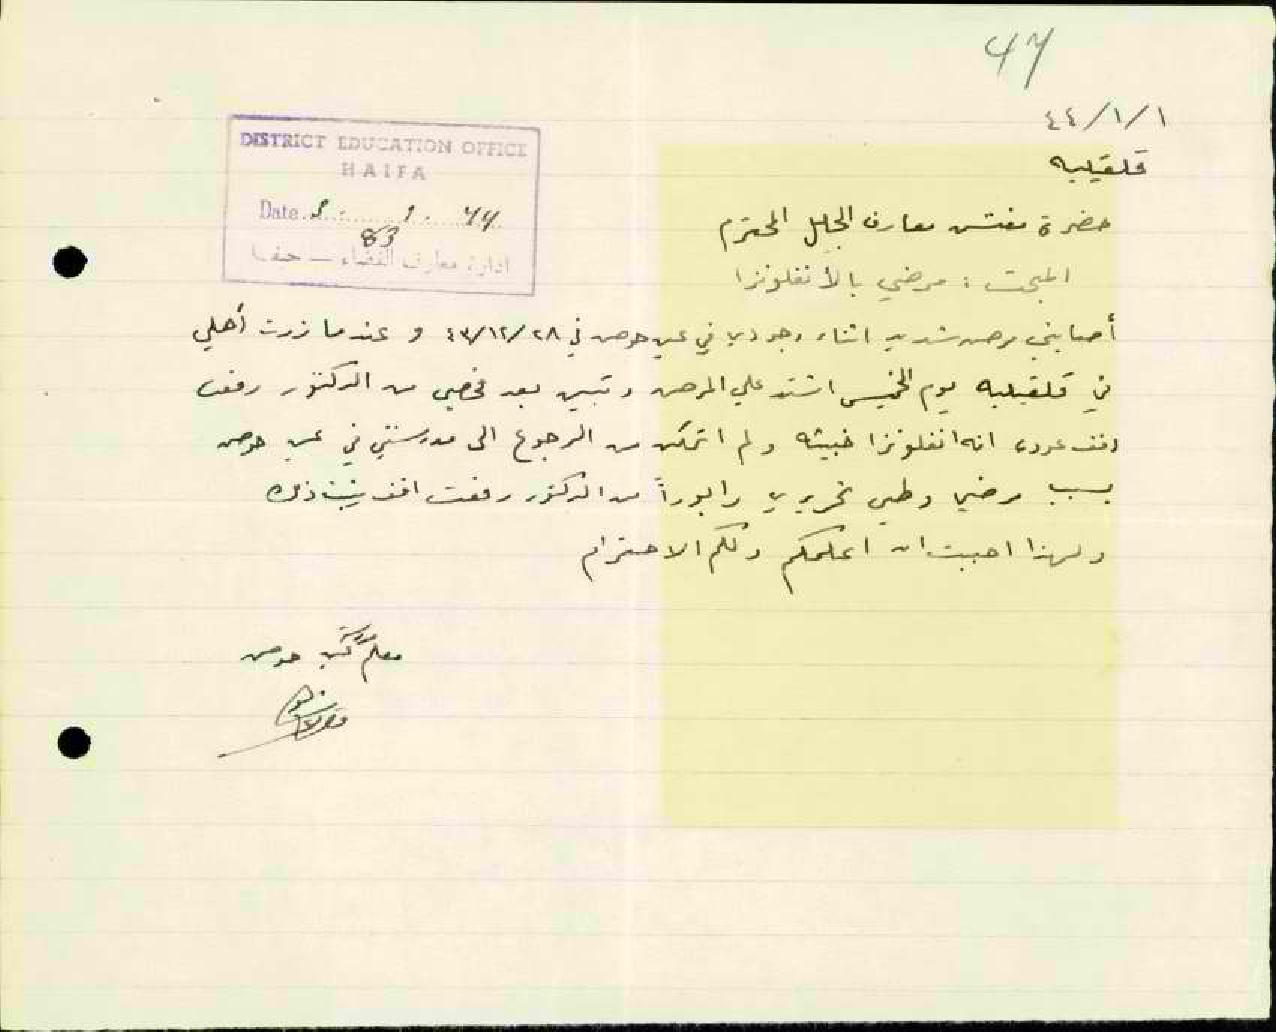 47
٤٤/١/١
قلقيليه
DISTRICT EDUCATION OFFICE
HAIFA
Date 1. 44
83
ادارة معارف القضاء — حيفا
حضرة مفتش معارف الجليل المحترم
المبحث : مرضي بالأنفلونزا
أصابني مرض شديد اثناء وجودي في عين حوض في ٤٣/١٢/٢٨ و عندما زرت أهلي
في قلقيليه يوم الخميس اشتد علي المرض وتبين بعد فحصي من الدكتور رفعت
عوده انه انفلونزا خبيثه و لم اتمكن من الرجوع الى مدرستي في عين حوض
بسبب مرضي وطي تحريري رابوراً من الدكتور رفعت افندي يثبت ذلك
ولهذا احببت ان اعلمكم ولكم الاحترام
معلم مدرسة حوض